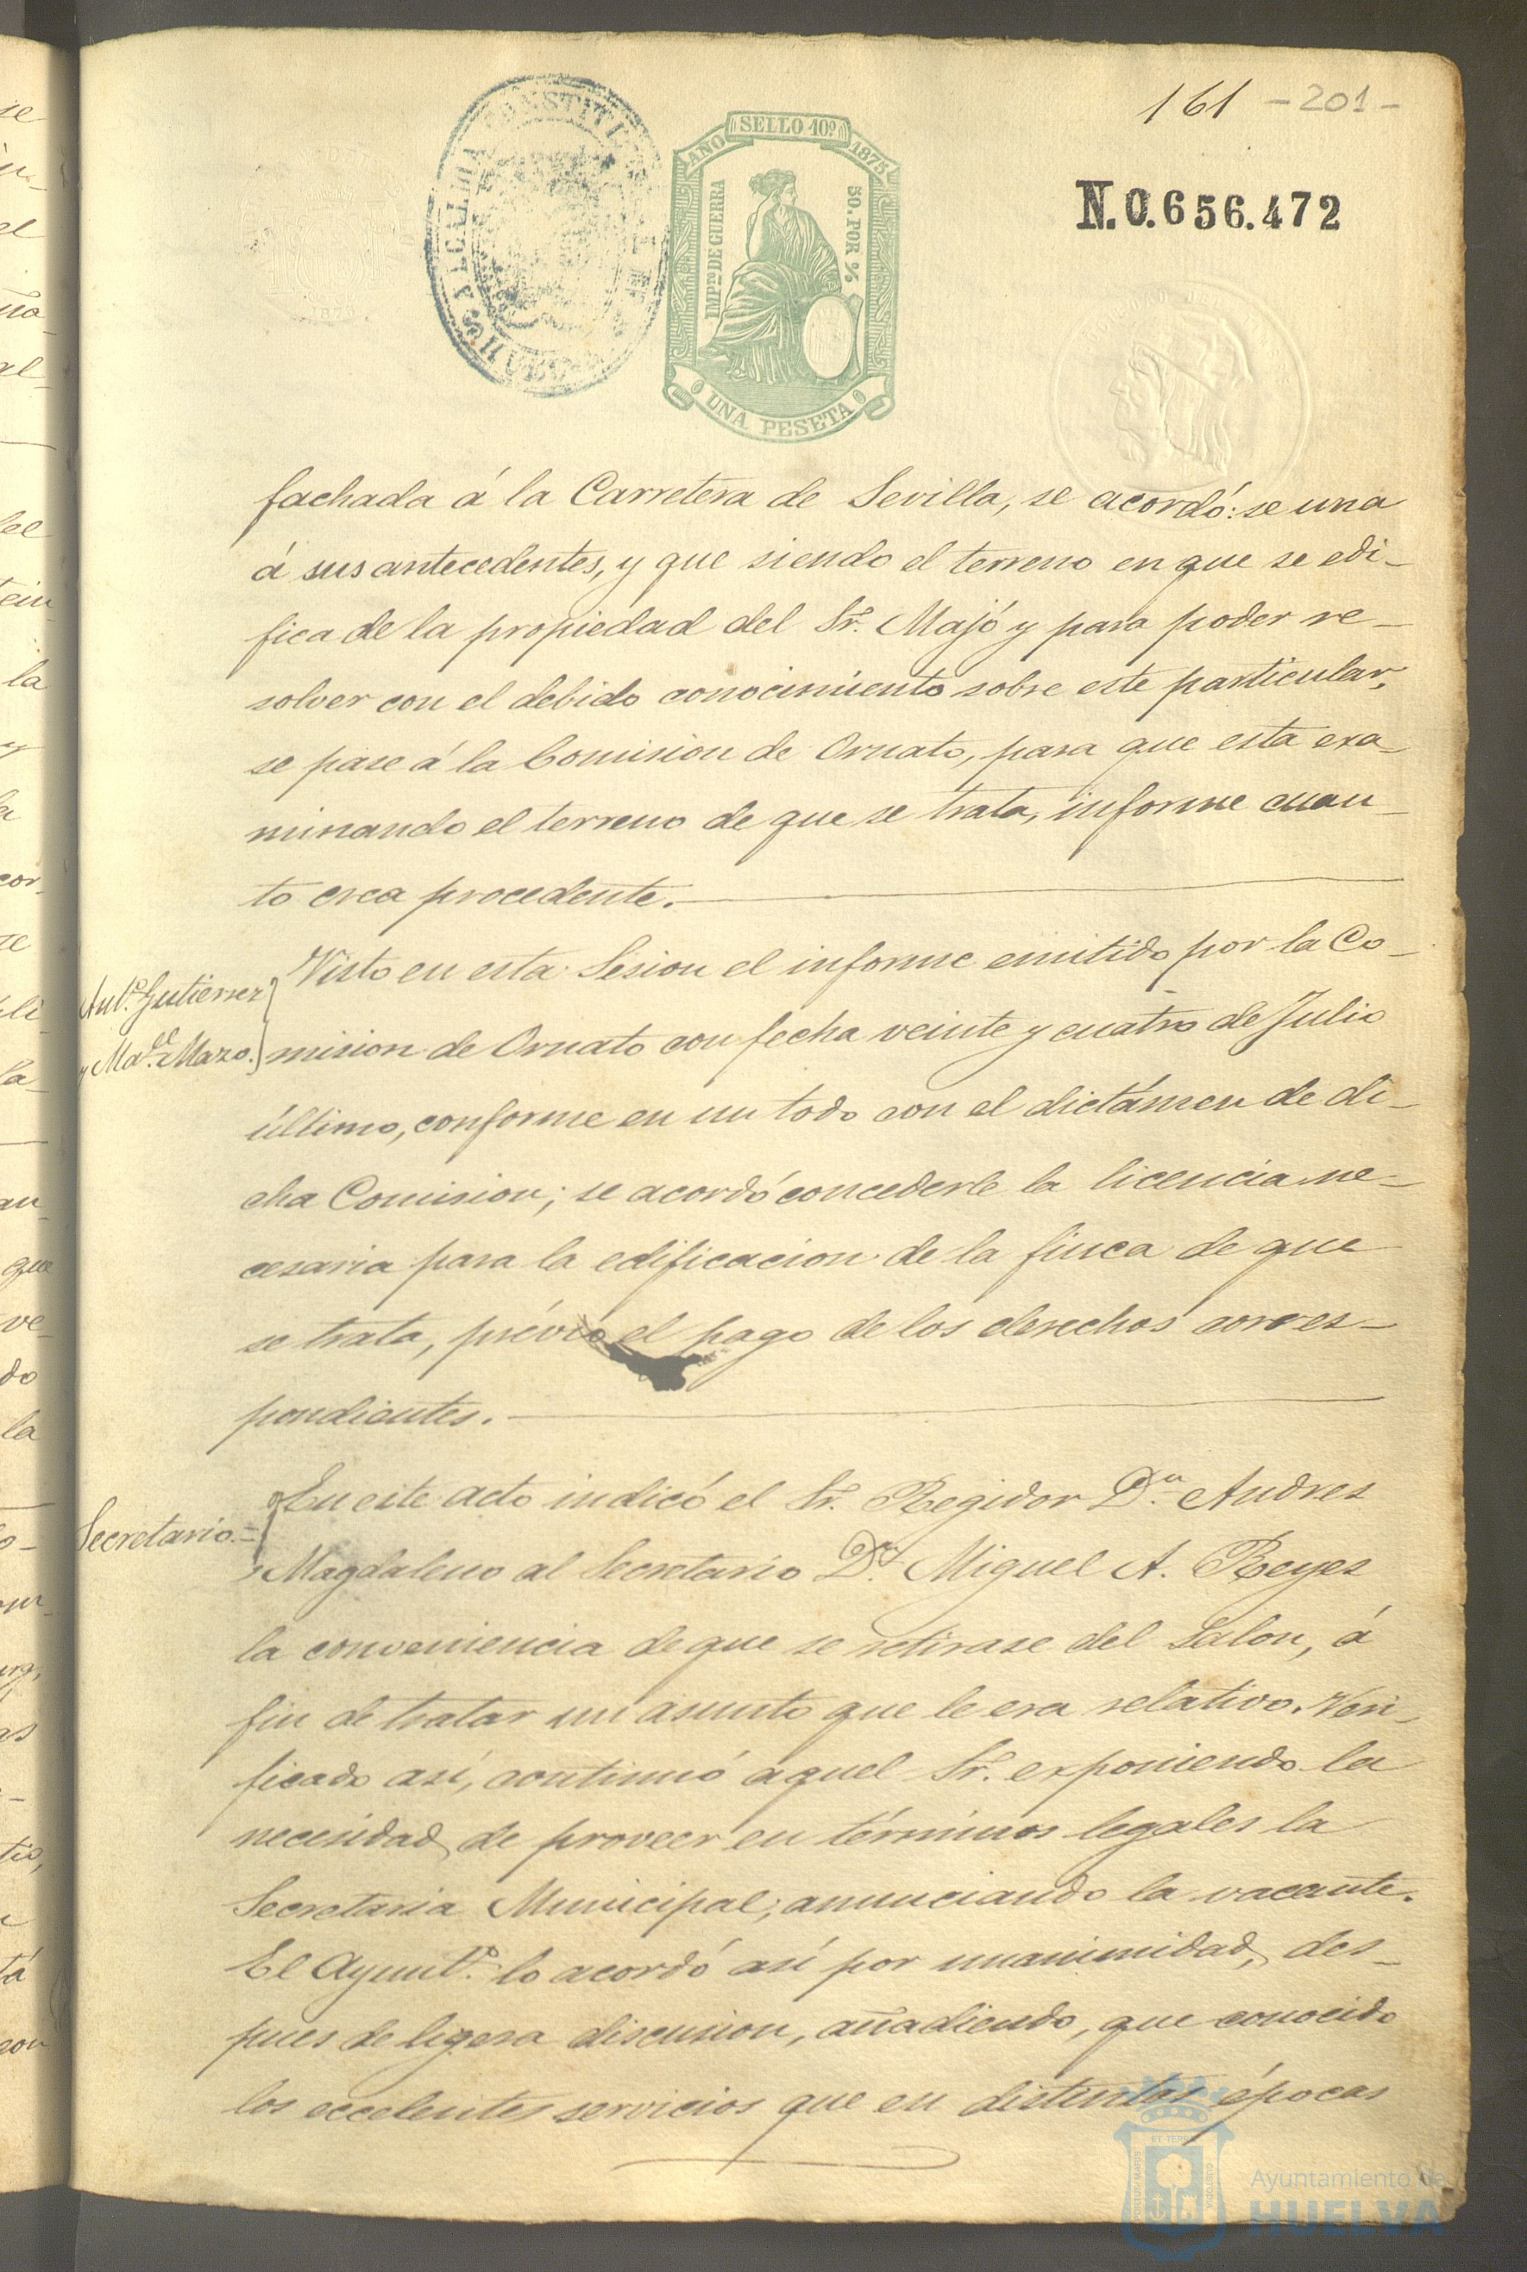 161 - 201 -
ALCALDIA CONSTITU
HUELVA
SELLO 10º
AÑO 1875
IMP.TO DE GUERRA
50. POR %
UNA PESETA
N.0.656.472
fachada á la Carretera de Sevilla, se acordó: se una
á sus antecedentes, y que siendo el terreno en que se edi-
fica de la propiedad del Sr. Majó y para poder re-
solver con el debido conocimiento sobre este particular,
se pase á la Comision de Ornato, para que esta exa-
minando el terreno de que se trata, informe cuan-
to crea procedente.
Ant.º Gutierrez
y Mad.de Mazo.
Visto en esta Sesion el informe emitido por la Co-
mision de Ornato con fecha veinte y cuatro de Julio
último, conforme en un todo con el dictámen de di-
cha Comision; se acordó concederle la licencia ne-
cesaria para la edificacion de la finca de que
se trata, prévio el pago de los derechos corres-
pondientes.
Secretario.=
En este acto indicó el Sr. Regidor D.n Andres
Magdaleno al Secretario D.n Miguel A. Reyes
la conveniencia de que se retirase del Salon, á
fin de tratar un asunto que le era relativo. Veri-
ficado así, continuó aquel Sr. exponiendo la
necesidad de proveer en términos legales la
Secretaria Municipal, anunciando la vacante.
El Ayunt.º lo acordó así por unanimidad, des-
pues de ligera discusion, añadiendo, que conocido
los eccelentes servicios que en distintas épocas
Ayuntamiento de
HUELVA